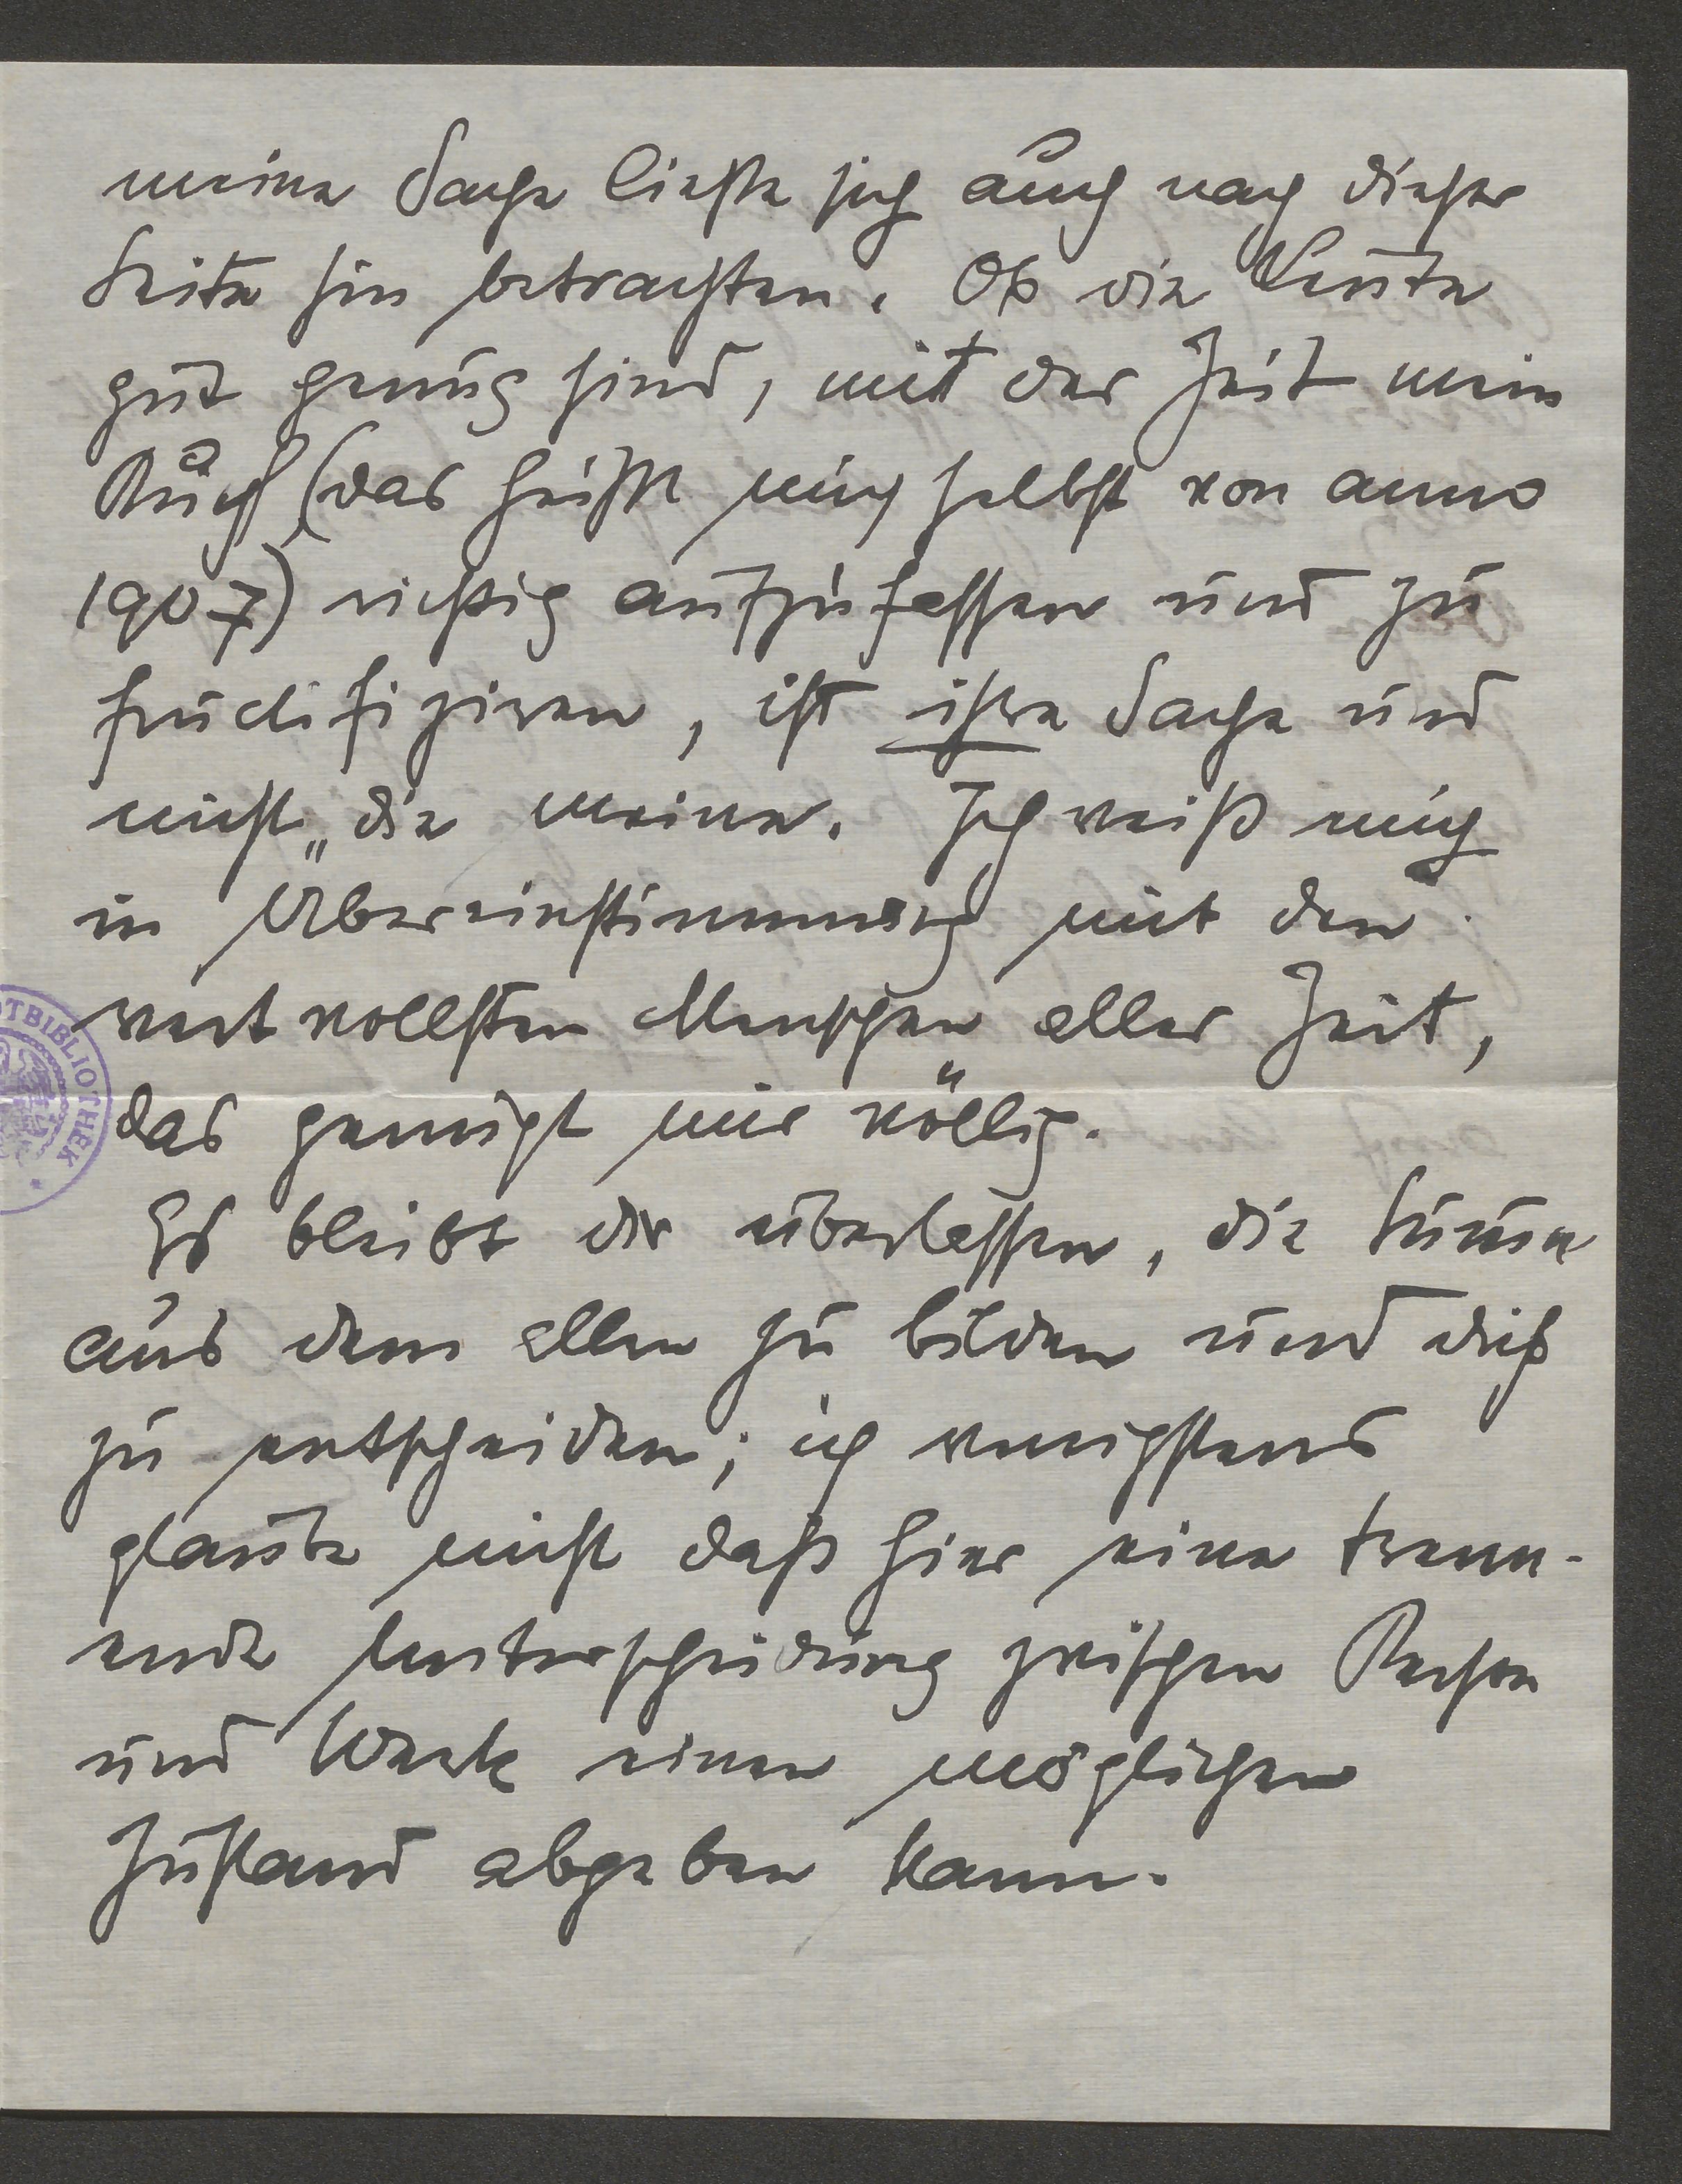 meine Sache ließe sich auch nach dieser
Seite hin betrachten. Ob die Leute
gut genug sind, mit der Zeit mein
Buch (das heißt mich selbst von anno
1907) richtig aufzufassen und zu
fructifiziren, ist ihre Sache und
nicht die meine. Ich weiß mich
in Übereinstimmung mit den
wertvollsten Menschen aller Zeit,
das genügt mir völlig.
Es bleibt dir überlassen, die Summe
aus dem allen zu bilden und dich
zu entscheiden; ich wenigstens
glaube nicht daß hier eine trenn-
ende Unterscheidung zwischen Person
und Werk einen möglichen
Zustand abgeben kann.
OTBIBLIOTHEK